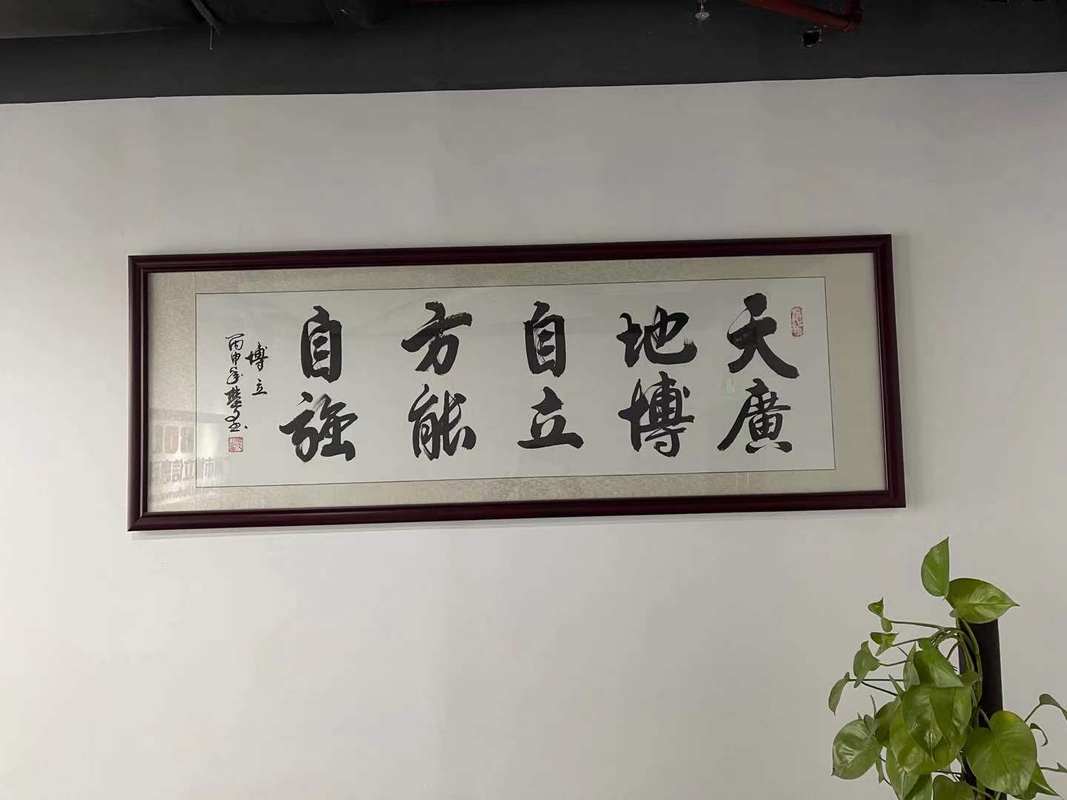 天廣
地博
自立
方能
自強
博立
丙申年